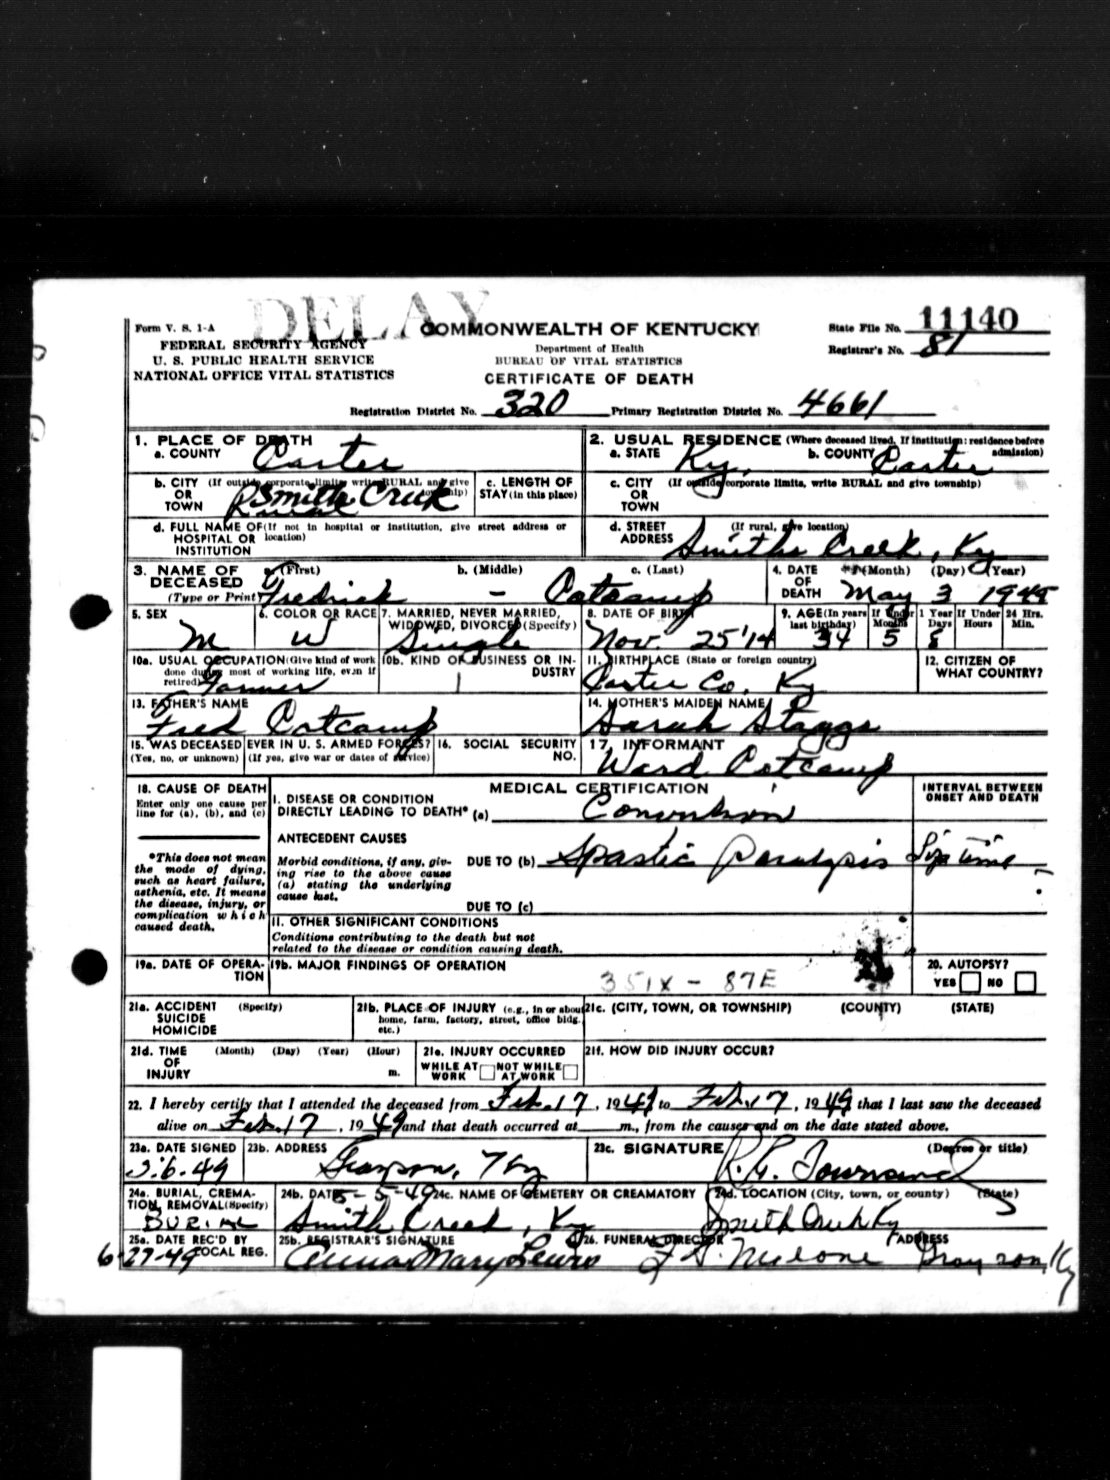 DELAY
Form V. S. 1-A
COMMONWEALTH OF KENTUCKY
State File No. 11140
FEDERAL SECURITY AGENCY
Department of Health
Registrar's No. 81
U. S. PUBLIC HEALTH SERVICE
BUREAU OF VITAL STATISTICS
NATIONAL OFFICE VITAL STATISTICS
CERTIFICATE OF DEATH
Registration District No. 320 Primary Registration District No. 4661
1. PLACE OF DEATH
a. COUNTY Carter
2. USUAL RESIDENCE (Where deceased lived. If institution: residence before admission)
a. STATE Ky. b. COUNTY Carter
b. CITY (If outside corporate limits write RURAL and give township)
OR
TOWN Smith Creek
Rural
c. LENGTH OF
STAY (in this place)
c. CITY (If outside corporate limits, write RURAL and give township)
OR
TOWN
d. FULL NAME OF (If not in hospital or institution, give street address or location)
HOSPITAL OR
INSTITUTION
d. STREET (If rural, give location)
ADDRESS Smiths Creek, Ky
3. NAME OF DECEASED (Type or Print)
a. (First) b. (Middle) c. (Last)
Fredrick - Catcamp
4. DATE OF DEATH (Month) (Day) (Year)
May 3 1949
5. SEX M
6. COLOR OR RACE W
7. MARRIED, NEVER MARRIED, WIDOWED, DIVORCED (Specify) Single
8. DATE OF BIRTH Nov. 25 '14
9. AGE (In years last birthday) 34
If Under 1 Year Months 5 Days 8
If Under 24 Hrs. Hours Min.
10a. USUAL OCCUPATION (Give kind of work done during most of working life, even if retired) Farmer
10b. KIND OF BUSINESS OR INDUSTRY
11. BIRTHPLACE (State or foreign country) Carter Co. Ky
12. CITIZEN OF WHAT COUNTRY?
13. FATHER'S NAME
Fred Catcamp
14. MOTHER'S MAIDEN NAME
Sarah Staggs
15. WAS DECEASED EVER IN U. S. ARMED FORCES?
(Yes, no, or unknown) (If yes, give war or dates of service)
16. SOCIAL SECURITY NO.
17. INFORMANT
Ward Catcamp
18. CAUSE OF DEATH
Enter only one cause per line for (a), (b), and (c)
MEDICAL CERTIFICATION
INTERVAL BETWEEN ONSET AND DEATH
I. DISEASE OR CONDITION
DIRECTLY LEADING TO DEATH* (a) Convulsion
ANTECEDENT CAUSES
*This does not mean the mode of dying, such as heart failure, asthenia, etc. It means the disease, injury, or complication which caused death.
Morbid conditions, if any, giving rise to the above cause (a) stating the underlying cause last.
DUE TO (b) Spastic paralysis Life time
DUE TO (c)
II. OTHER SIGNIFICANT CONDITIONS
Conditions contributing to the death but not
related to the disease or condition causing death.
19a. DATE OF OPERATION
19b. MAJOR FINDINGS OF OPERATION
351X - 87E
20. AUTOPSY?
YES NO
21a. ACCIDENT (Specify)
SUICIDE
HOMICIDE
21b. PLACE OF INJURY (e.g., in or about home, farm, factory, street, office bldg. etc.)
21c. (CITY, TOWN, OR TOWNSHIP) (COUNTY) (STATE)
21d. TIME (Month) (Day) (Year) (Hour)
OF
INJURY m.
21e. INJURY OCCURRED
WHILE AT WORK NOT WHILE AT WORK
21f. HOW DID INJURY OCCUR?
22. I hereby certify that I attended the deceased from Feb. 17, 1949 to Feb. 17, 1949 that I last saw the deceased
alive on Feb. 17, 1949 and that death occurred at m., from the causes and on the date stated above.
23a. DATE SIGNED
23b. ADDRESS Grayson, Ky
23c. SIGNATURE (Degree or title)
Townsend
24a. BURIAL, CREMATION, REMOVAL (Specify)
BURIAL
24b. DATE 5-5-49
24c. NAME OF CEMETERY OR CREAMATORY
Smith Creek, Ky
24d. LOCATION (City, town, or county) (State)
Smith Creek Ky
25a. DATE REC'D BY LOCAL REG.
6-27-49
25b. REGISTRAR'S SIGNATURE
Anna Mary Lewis
26. FUNERAL DIRECTOR ADDRESS
Malone Grayson, Ky